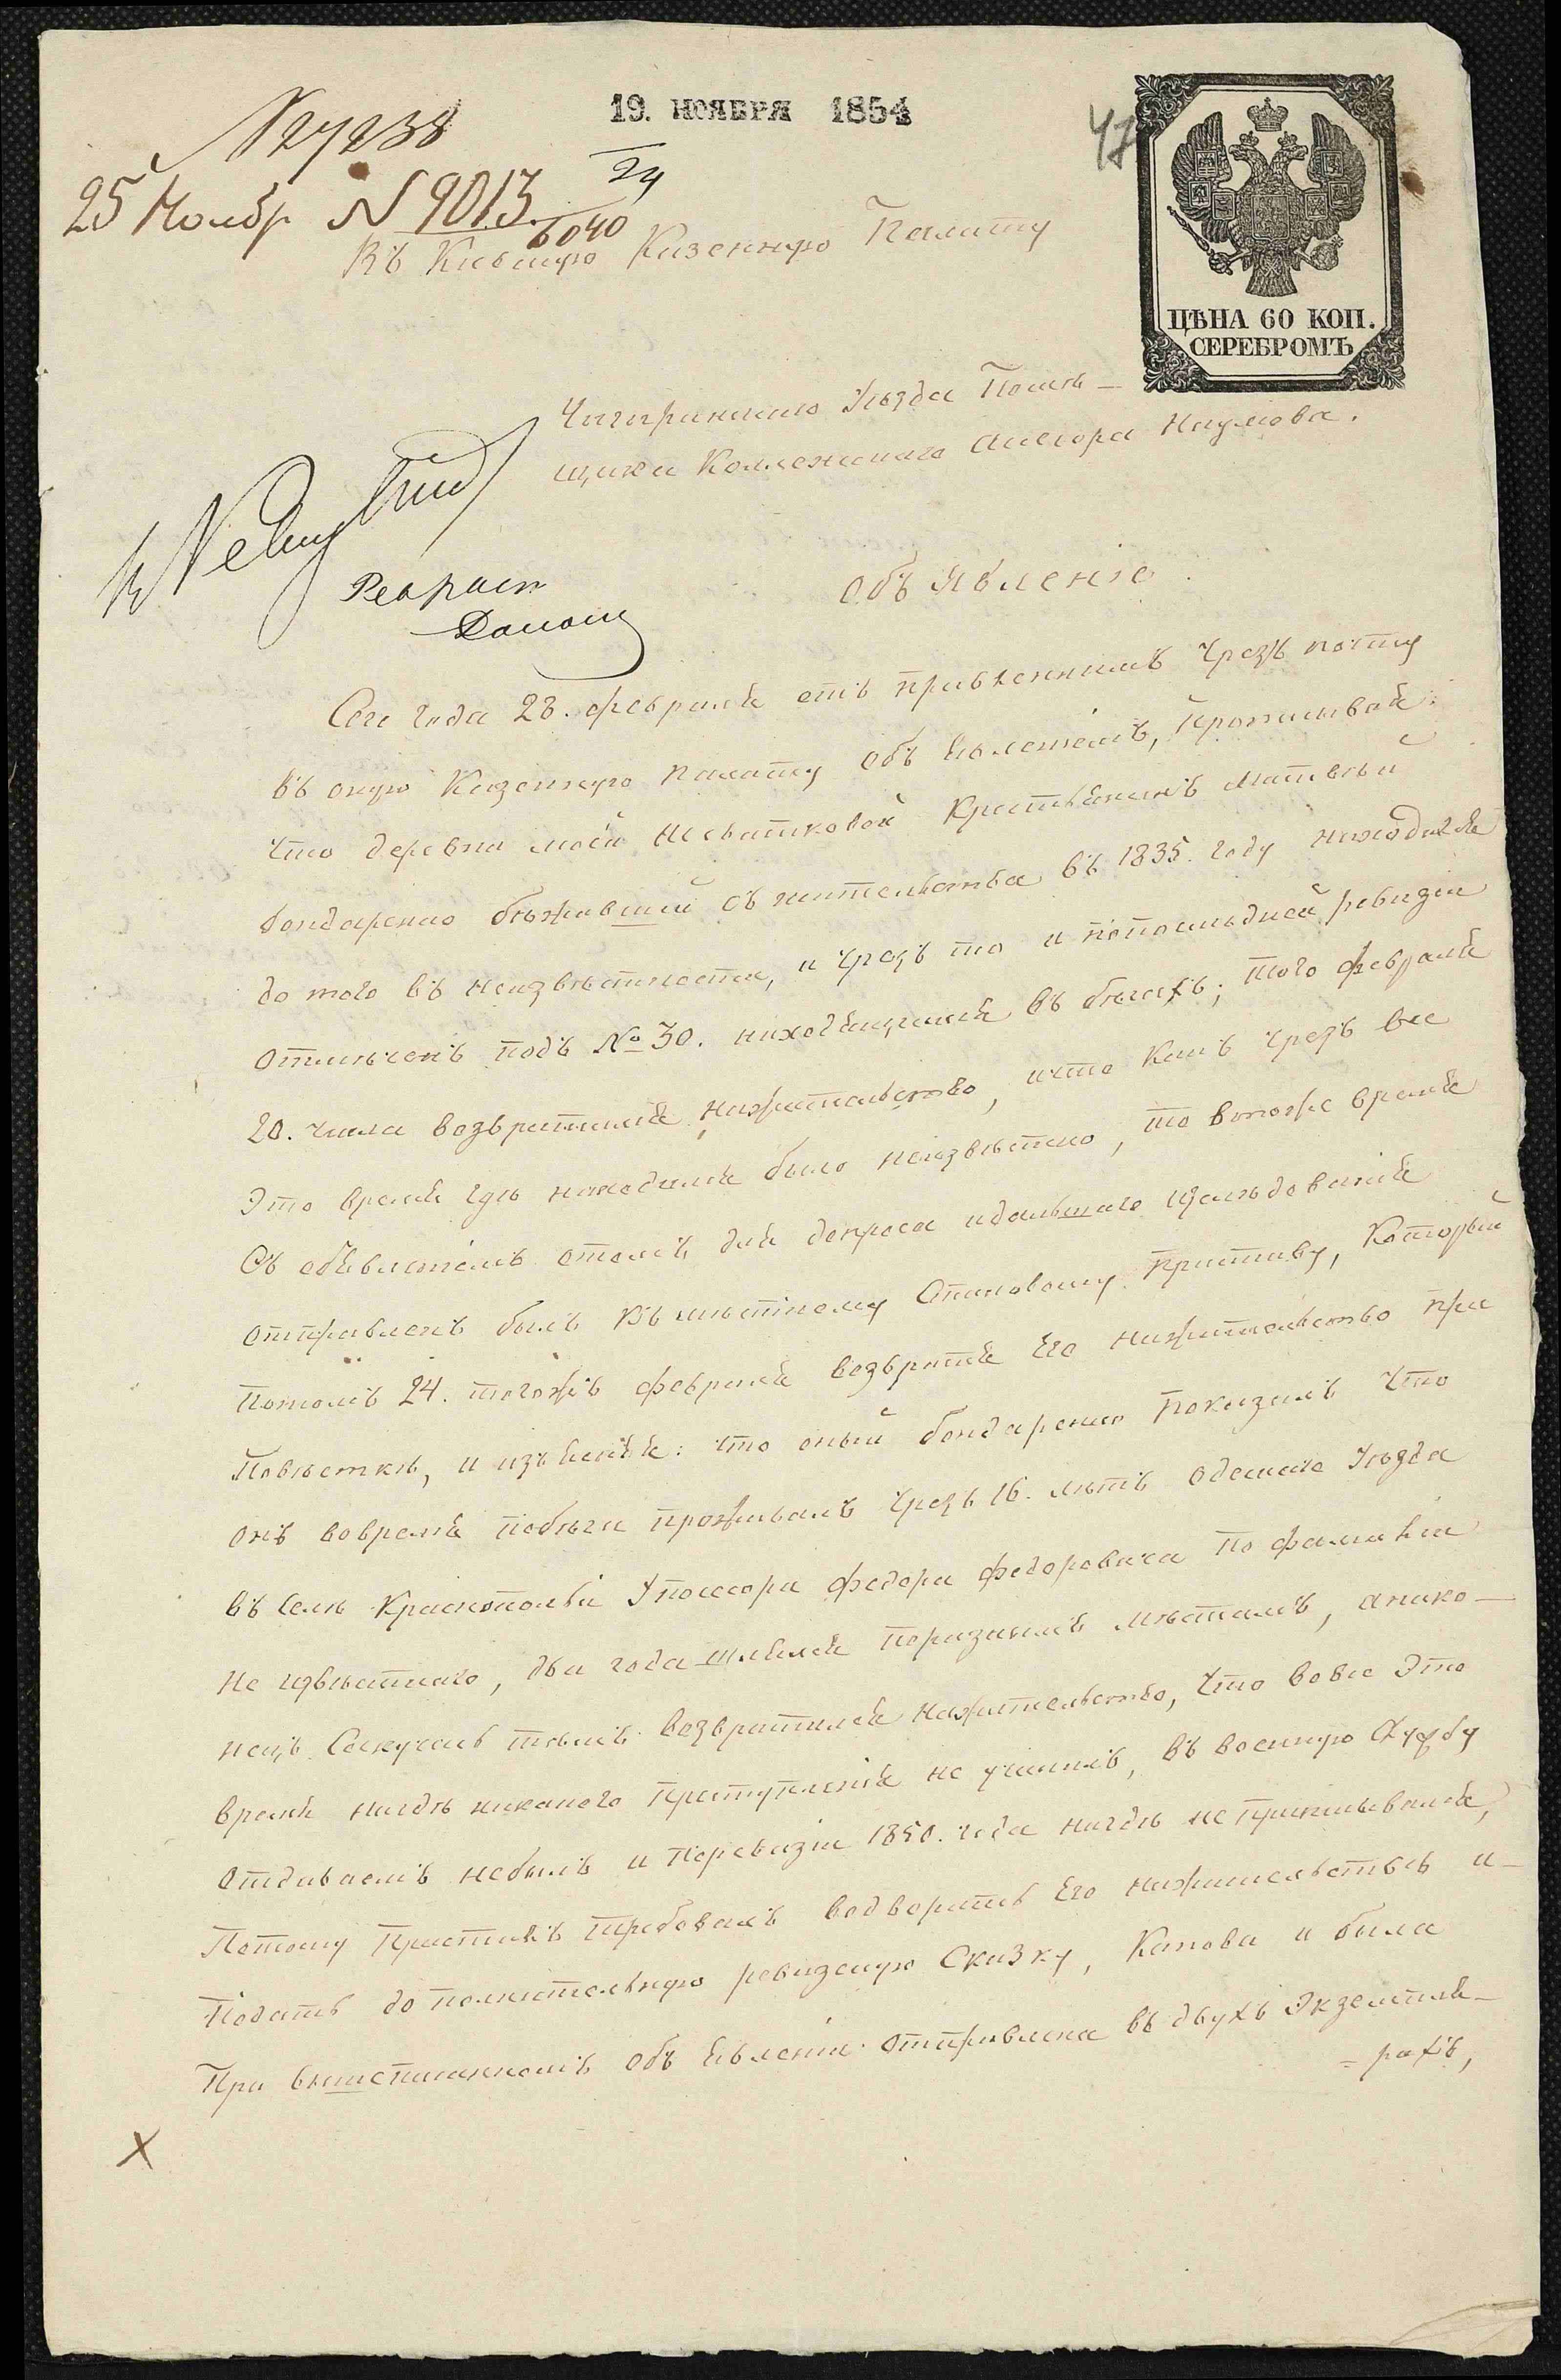 19. НОЯБРЯ 1854
47
24
25 Ноябр N 9013
6040
Въ Киевскую Казенную Палату
ЦѢНА 60 КОП.
СЕРЕБРОМЪ
Чигиринскаго Уѣзда Помѣ-
щика Коллежскаго Асесора Наумова.
Объявленіе
Сего года 28. февраля отправленнымъ чрезъ почту
въ оную Казенную палату объявленіемъ, прописывая:
что деревни моей Ивковой крестьянинъ Матвѣй
Бондаренко бѣжавшій съ жительства въ 1835. году находился
до того въ неизвѣстности, и чрезъ то и попослѣдней ревизіи
отмѣченъ подъ № 30. находящимся въ бѣгахъ; того февраля
20. числа возвратился нажительство, ичто какъ чрезъ все
Это время гдѣ находился было неизвѣстно, то втоже время
Съ объявленіемъ отомъ для допроса идальшаго изслѣдованія
отправленъ былъ къ мѣстному Становому приставу, Который
потомъ 24. тогожъ февраля возвратя Его нажительство при
Повѣсткѣ, и изъясняя: что оный Бондаренко показалъ что
онъ вовремя побѣга проживалъ чрезъ 16. лѣтъ Одескаго Уѣзда
въ Селѣ Краснополѣи Упосесора федора федоровича по фамиліи
не извѣстнаго, два года шлялся поразнымъ мѣстамъ, анако-
нецъ Соскучась тѣмъ возвратился нажительство, что вовсе Это
время нигдѣ никакого преступленія не учинилъ, въ военную Службу
отдаваемъ небылъ и поревизіи 1850. года нигдѣ неприписывался,
Потому приставъ требовалъ водворить Его нажительствѣ и-
Подать дополнительную ревизскую Сказку, Какова и была
При вышеписанномъ объявленіи отправлена въ двухъ Экземпля-
= рахъ,